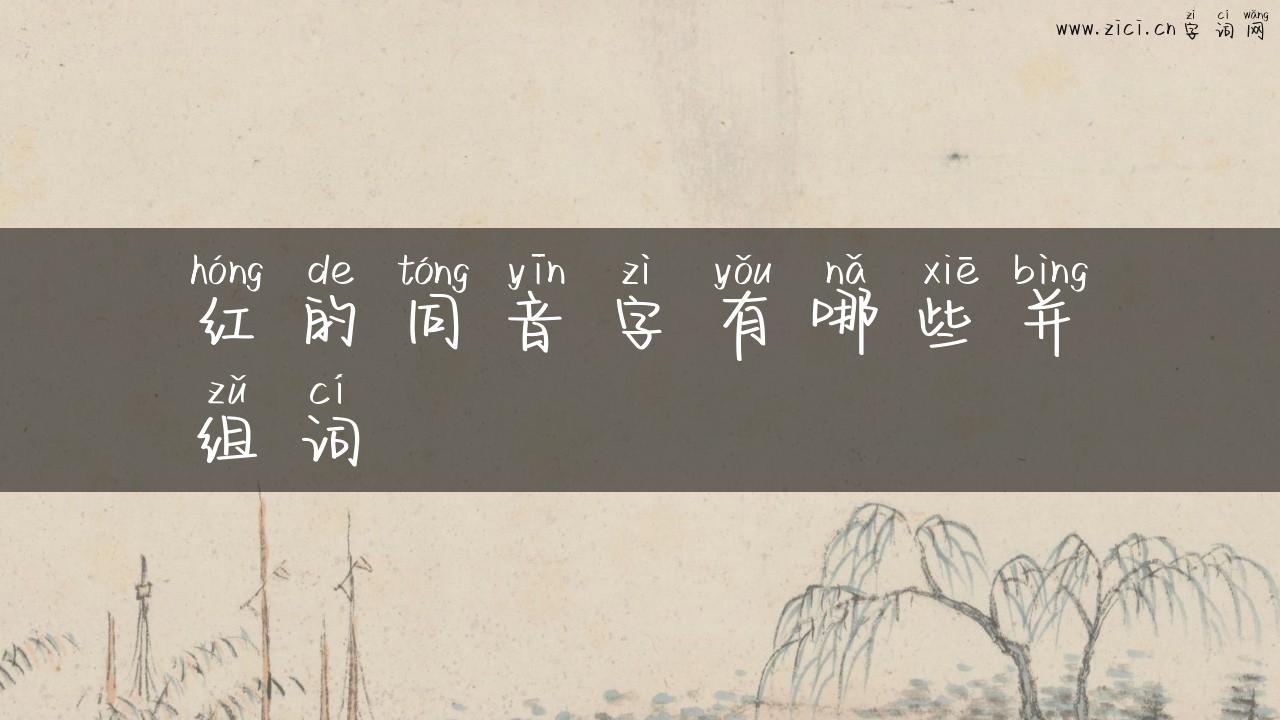 zì cí wǎng
www.zici.cn 字词网
hóng de tóng yīn zì yǒu nǎ xiē bìng
红的同音字有哪些并
zǔ cí
组词